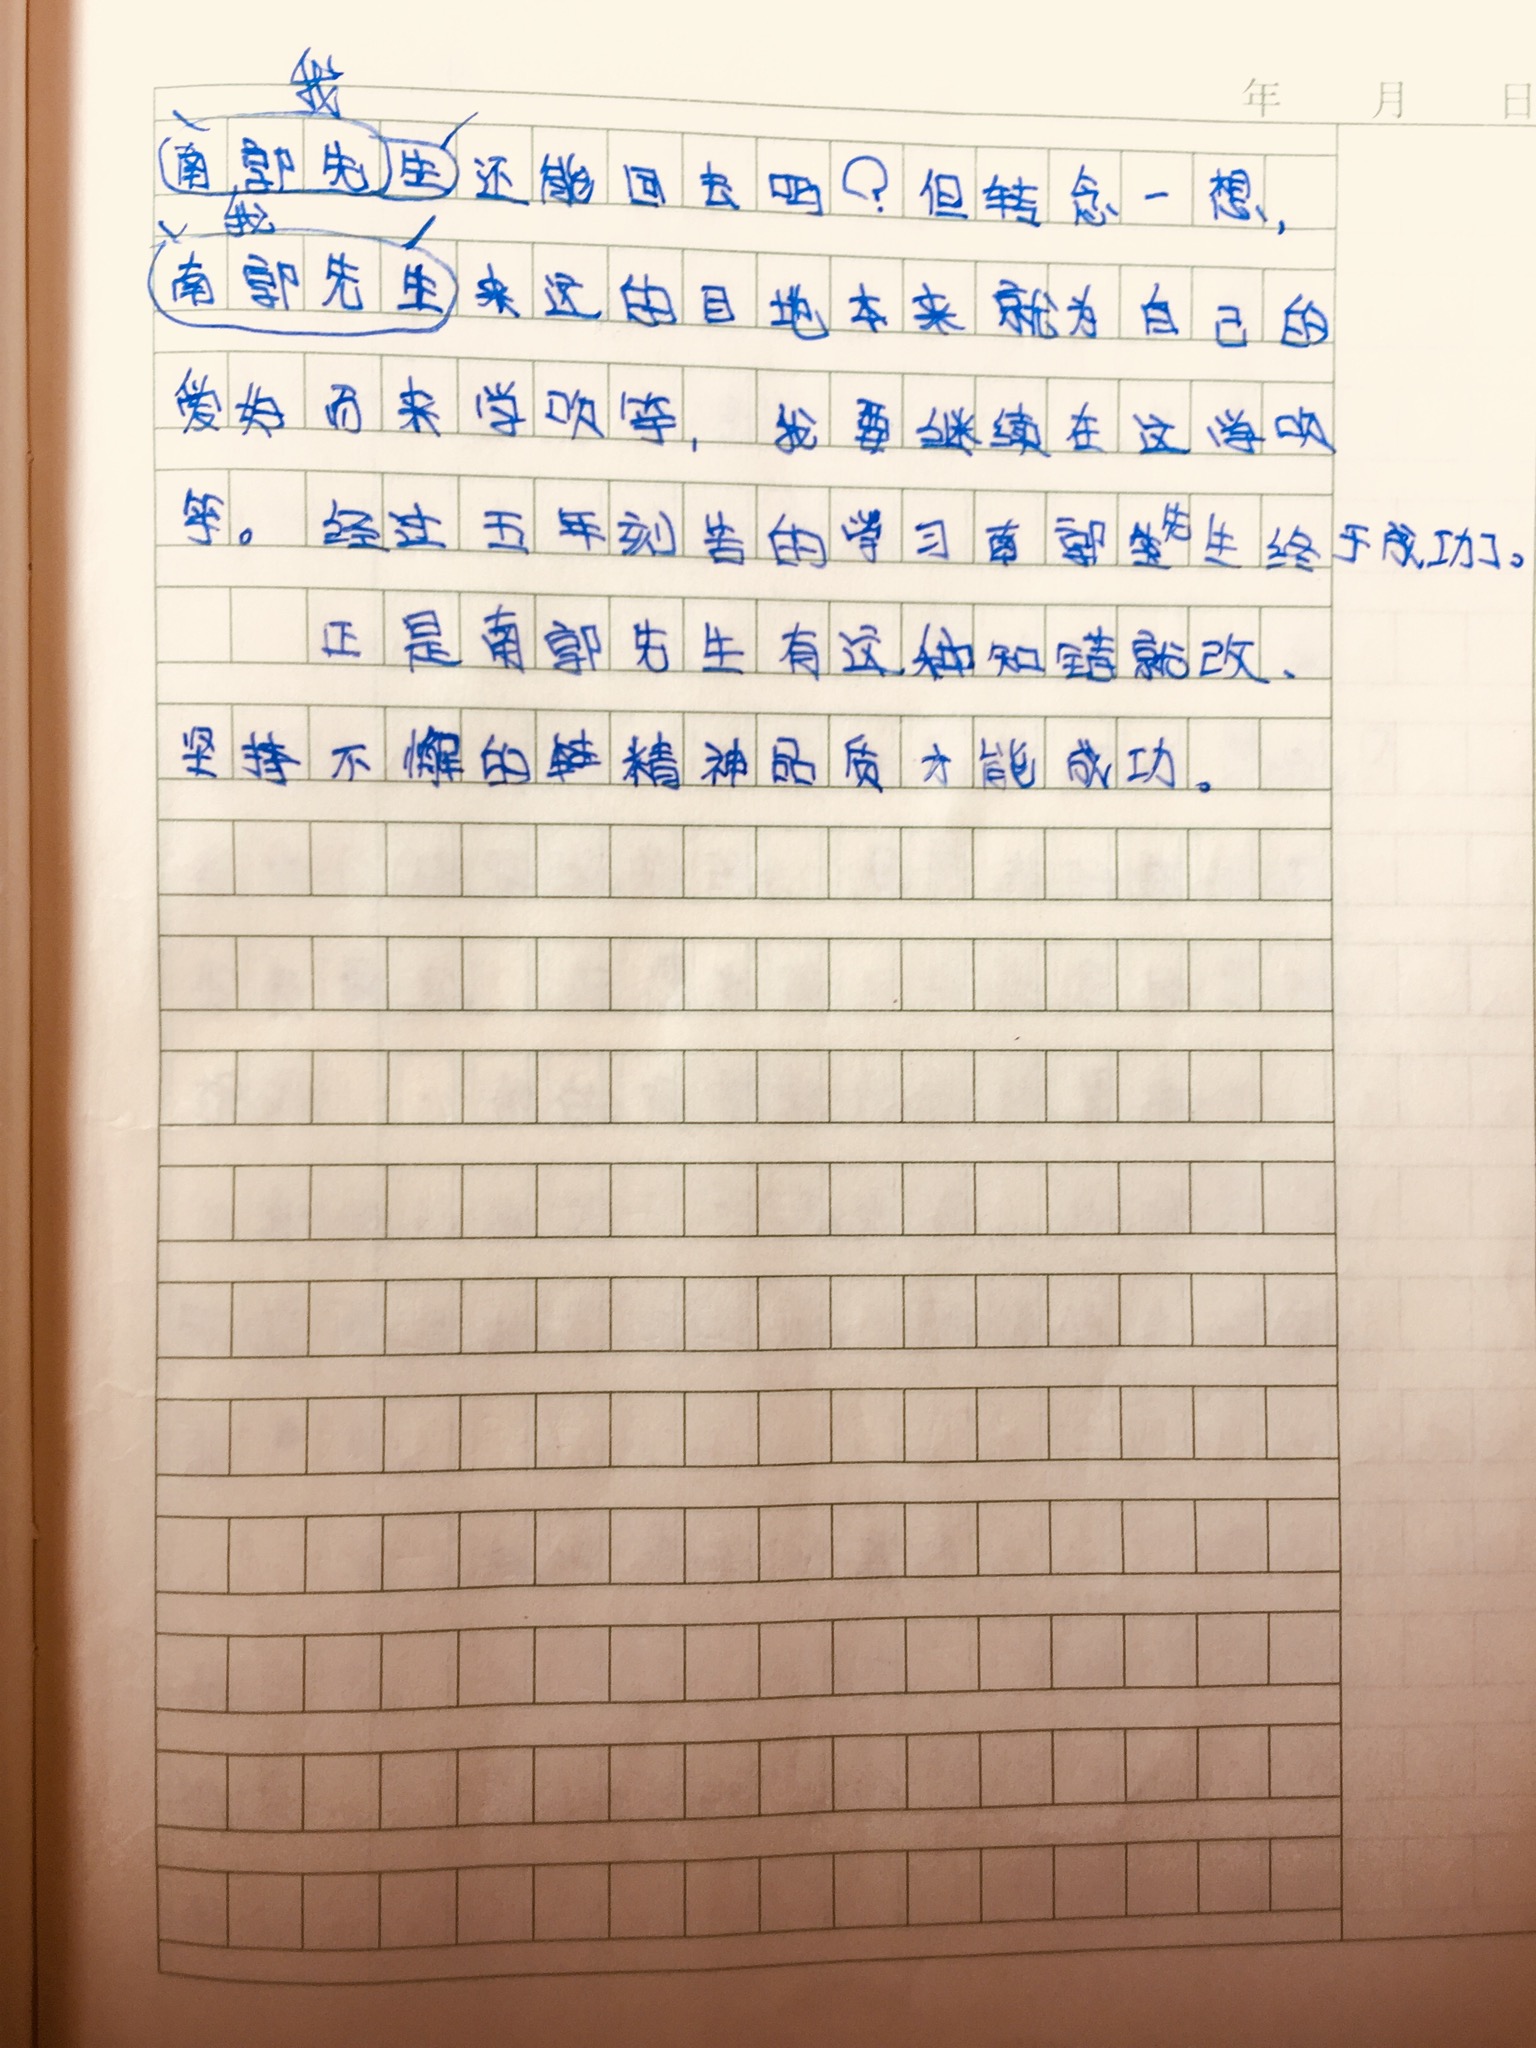 年 月 日
我
南郭先生还能回去吗？但转念一想，
我
南郭先生来这的目地本来就为自己的
爱好而来学吹竽，我要继续在这学吹
竽。经过五年刻苦的学习南郭先生终于成功了。
正是南郭先生有这种知错就改、
坚持不懈的精神品质才能成功。